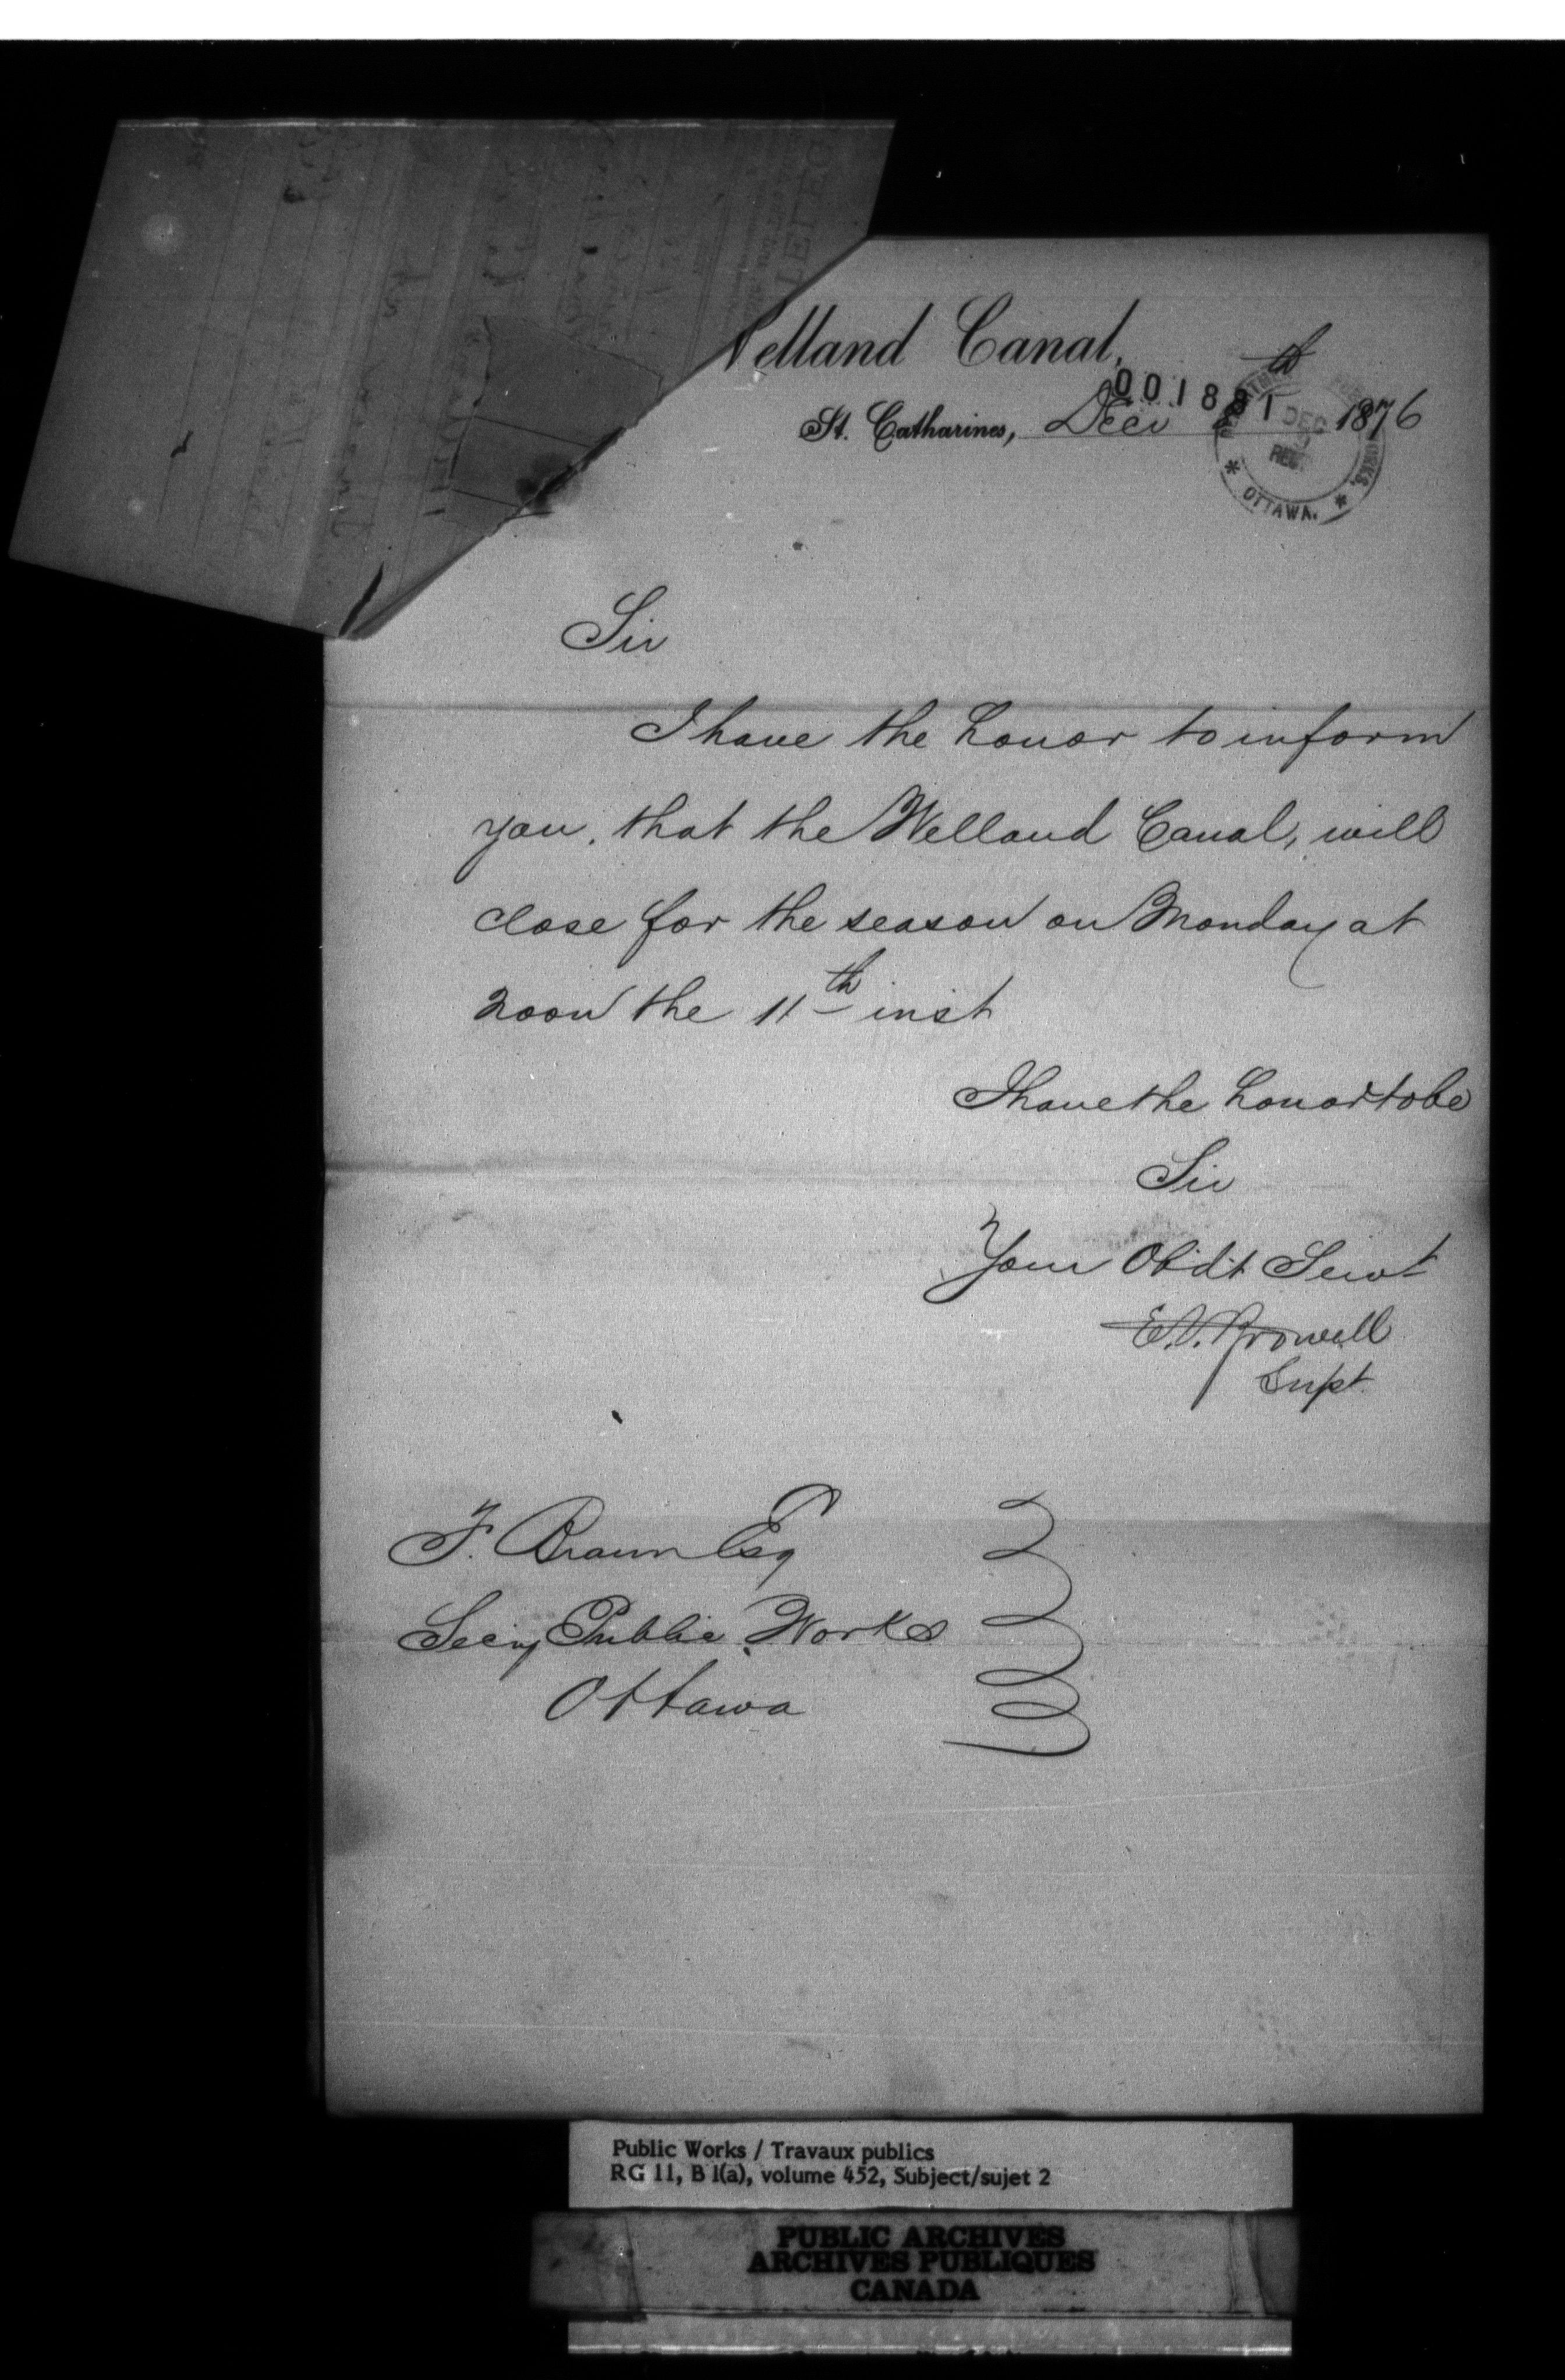 elland Canal,
001881
St. Catharines, Decr th 1876
DEC
RECD
WORKS.
* OTTAWA. *
Sir
I have the honor to inform
you, that the Welland Canal, will
close for the season on Monday at
noon the 11th inst
I have the honor to be
Sir
Your Obdt Servt
E.V. Bodwell
Supt.
F. Braun Esq
Secy Public Works
Ottawa
Public Works / Travaux publics
RG 11, B 1(a), volume 452, Subject/sujet 2
PUBLIC ARCHIVES
ARCHIVES PUBLIQUES
CANADA